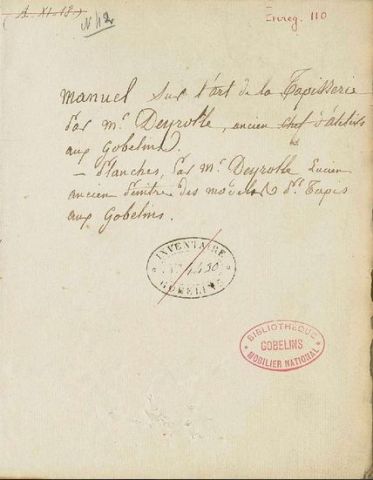 A. XI. 18.
N 12
Enreg. 110
Manuel sur l'art de la Tapisserie
Par Mr. Deyrolle, ancien chef d'atelier
aux Gobelins.
— Planches, Par Mr. Deyrolle Lucien
ancien Peintre des modèles de Tapis
aux Gobelins.
INVENTAIRE
GOBELINS
BIBLIOTHÈQUE
GOBELINS
MOBILIER NATIONAL